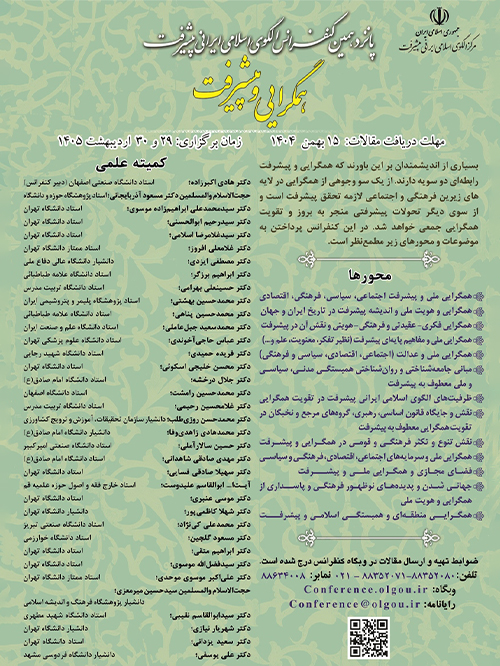 جمهوری اسلامی ایران
مرکز الگوی اسلامی ایرانی پیشرفت
پانزدهمین کنفرانس الگوی اسلامی ایرانی پیشرفت
همگرایی و پیشرفت
مهلت دریافت مقالات: ۱۵ بهمن ۱۴۰۴
زمان برگزاری: ۲۹ و ۳۰ اردیبهشت ۱۴۰۵
بسیاری از اندیشمندان بر این باورند که همگرایی و پیشرفت
رابطه‌ای دو سویه دارند. از یک سو وجوهی از همگرایی در لایه
های زیرین فرهنگی و اجتماعی لازمه تحقق پیشرفت است و
از سوی دیگر تحولات پیشرفتی منجر به بروز و تقویت
همگرایی جمعی خواهد شد. در این کنفرانس پرداختن به
موضوعات و محورهای زیر مطمع‌نظر است.
محورها
همگرایی ملی و پیشرفت اجتماعی، سیاسی، فرهنگی، اقتصادی
همگرایی و هویت ملی و اندیشه پیشرفت در تاریخ ایران و جهان
همگرایی فکری- عقیدتی و فرهنگی-هویتی و نقش آن در پیشرفت
همگرایی ملی و مفاهیم پایه‌ای پیشرفت (نظیر تفکر، معنویت، علم و...)
همگرایی ملی و عدالت (اجتماعی، اقتصادی، سیاسی و فرهنگی)
مبانی جامعه‌شناختی و روان‌شناختی همبستگی مدنی، سیاسی
و ملی معطوف به پیشرفت
ظرفیت‌های الگوی اسلامی ایرانی پیشرفت در تقویت همگرایی
نقش و جایگاه قانون اساسی، رهبری، گروه‌های مرجع و نخبگان در
تقویت همگرایی معطوف به پیشرفت
نقش تنوع و تکثر فرهنگی و قومی در همگرایی و پیشرفت
همگرایی ملی و سرمایه‌های اجتماعی، اقتصادی، فرهنگی و سیاسی
فضای مجازی و همگرایی ملی و پیشرفت
جهانی شدن و پدیده‌های نوظهور فرهنگی و پاسداری از
همگرایی و هویت ملی
همگرایی منطقه‌ای و همبستگی اسلامی و پیشرفت
ضوابط تهیه و ارسال مقالات در وبگاه کنفرانس درج شده است.
تلفن: ۸۸۳۵۲۰۸۰-۸۸۳۵۲۰۷۱ - ۰۲۱ نمابر: ۸۸۶۳۴۰۰۸
وبگاه: Conference.olgou.ir
رایانامه: Conference@olgou.ir
کمیته علمی
دکتر هادی اکبرزاده؛ استاد دانشگاه صنعتی اصفهان (دبیر کنفرانس)
حجت‌الاسلام والمسلمین دکتر مسعود آذربایجانی؛ استاد پژوهشگاه حوزه و دانشگاه
دکتر سیدمحمدعلی ابراهیم‌زاده موسوی؛ استاد دانشگاه تهران
دکتر سیدرحیم ابوالحسنی؛ استاد دانشگاه تهران
دکتر سیدغلامرضا اسلامی؛ استاد دانشگاه تهران
دکتر غلامعلی افروز؛ استاد ممتاز دانشگاه تهران
دکتر مصطفی ایزدی؛ دانشیار دانشگاه عالی دفاع ملی
دکتر ابراهیم برزگر؛ استاد دانشگاه علامه طباطبائی
دکتر حسینعلی بهرامی؛ استاد دانشگاه تربیت مدرس
دکتر محمدحسین بهشتی؛ استاد پژوهشگاه پلیمر و پتروشیمی ایران
دکتر محمدحسین پناهی؛ استاد دانشگاه علامه طباطبائی
دکتر محمدسعید جبل‌عاملی؛ استاد دانشگاه علم و صنعت ایران
دکتر عباس حاجی‌آخوندی؛ استاد دانشگاه علوم پزشکی تهران
دکتر فریده حمیدی؛ استاد دانشگاه شهید رجایی
دکتر محسن خلیجی اسکوئی؛ استاد دانشگاه تهران
دکتر جلال درخشه؛ استاد دانشگاه امام صادق(ع)
دکتر محمدحسین رامشت؛ استاد دانشگاه اصفهان
دکتر غلامحسین رحیمی؛ استاد دانشگاه تربیت مدرس
دکتر محمدحسن روزی‌طلب؛ دانشیار سازمان تحقیقات، آموزش و ترویج کشاورزی
دکتر محمدهادی زاهدی‌وفا؛ دانشیار دانشگاه امام صادق(ع)
دکتر حسین سالارآملی؛ استاد دانشگاه صنعتی امیرکبیر
دکتر مهدی صادقی شاهدانی؛ استاد دانشگاه امام صادق(ع)
دکتر سهیلا صادقی فسایی؛ استاد دانشگاه تهران
آیت‌ا... ابوالقاسم علیدوست؛ استاد خارج فقه و اصول حوزه علمیه قم
دکتر موسی عنبری؛ استاد دانشگاه تهران
دکتر شهلا کاظمی‌پور؛ دانشیار دانشگاه تهران
دکتر محمدعلی کی‌نژاد؛ استاد دانشگاه صنعتی تبریز
دکتر مسعود گلچین؛ استاد دانشگاه خوارزمی
دکتر ابراهیم متقی؛ استاد دانشگاه تهران
دکتر سیدفضل‌الله موسوی؛ استاد دانشگاه تهران
دکتر علی‌اکبر موسوی موحدی؛ استاد ممتاز دانشگاه تهران
حجت‌الاسلام والمسلمین سیدحسین میرمعزی؛
دانشیار پژوهشگاه فرهنگ و اندیشه اسلامی
دکتر سیدابوالقاسم نقیبی؛ استاد دانشگاه شهید مطهری
دکتر شهریار نیازی؛ دانشیار دانشگاه تهران
دکتر سعید یزدانی؛ استاد دانشگاه تهران
دکتر علی یوسفی؛ دانشیار دانشگاه فردوسی مشهد